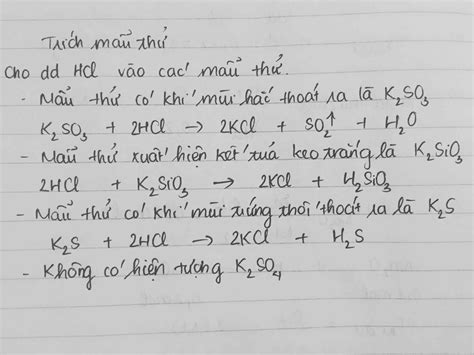 Trích mẫu thử
Cho dd HCl vào các mẫu thử.
- Mẫu thử có khí mùi hắc thoát ra là K₂SO₃
K₂SO₃ + 2HCl → 2KCl + SO₂↑ + H₂O
- Mẫu thử xuất hiện kết tủa keo trắng là K₂SiO₃
2HCl + K₂SiO₃ → 2KCl + H₂SiO₃
- Mẫu thử có khí mùi trứng thối thoát ra là K₂S
K₂S + 2HCl → 2KCl + H₂S
- Không có hiện tượng K₂SO₄